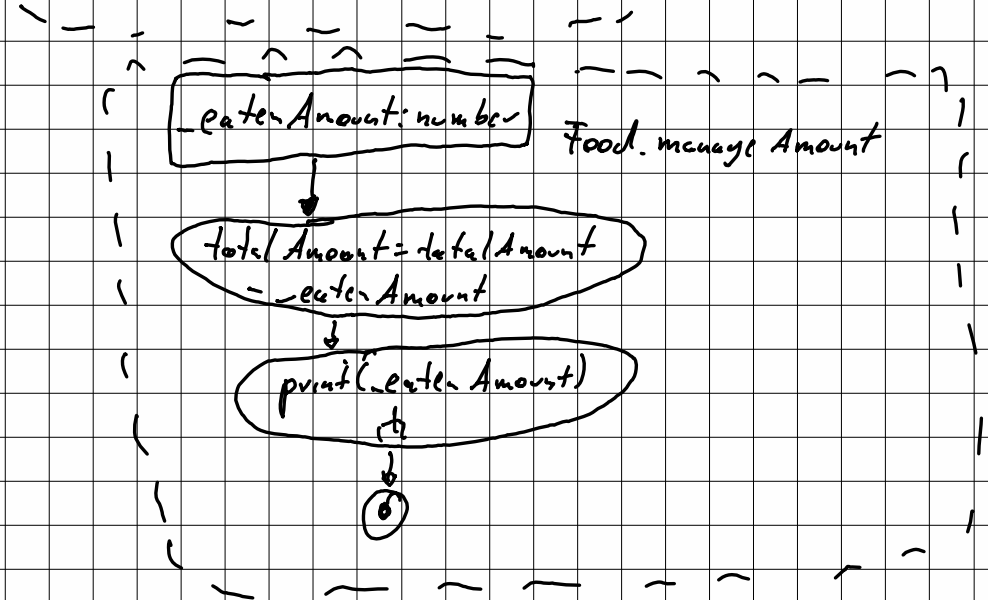 _eatenAmount: number
Food.manageAmount
totalAmount = totalAmount
- _eatenAmount
print(_eatenAmount)